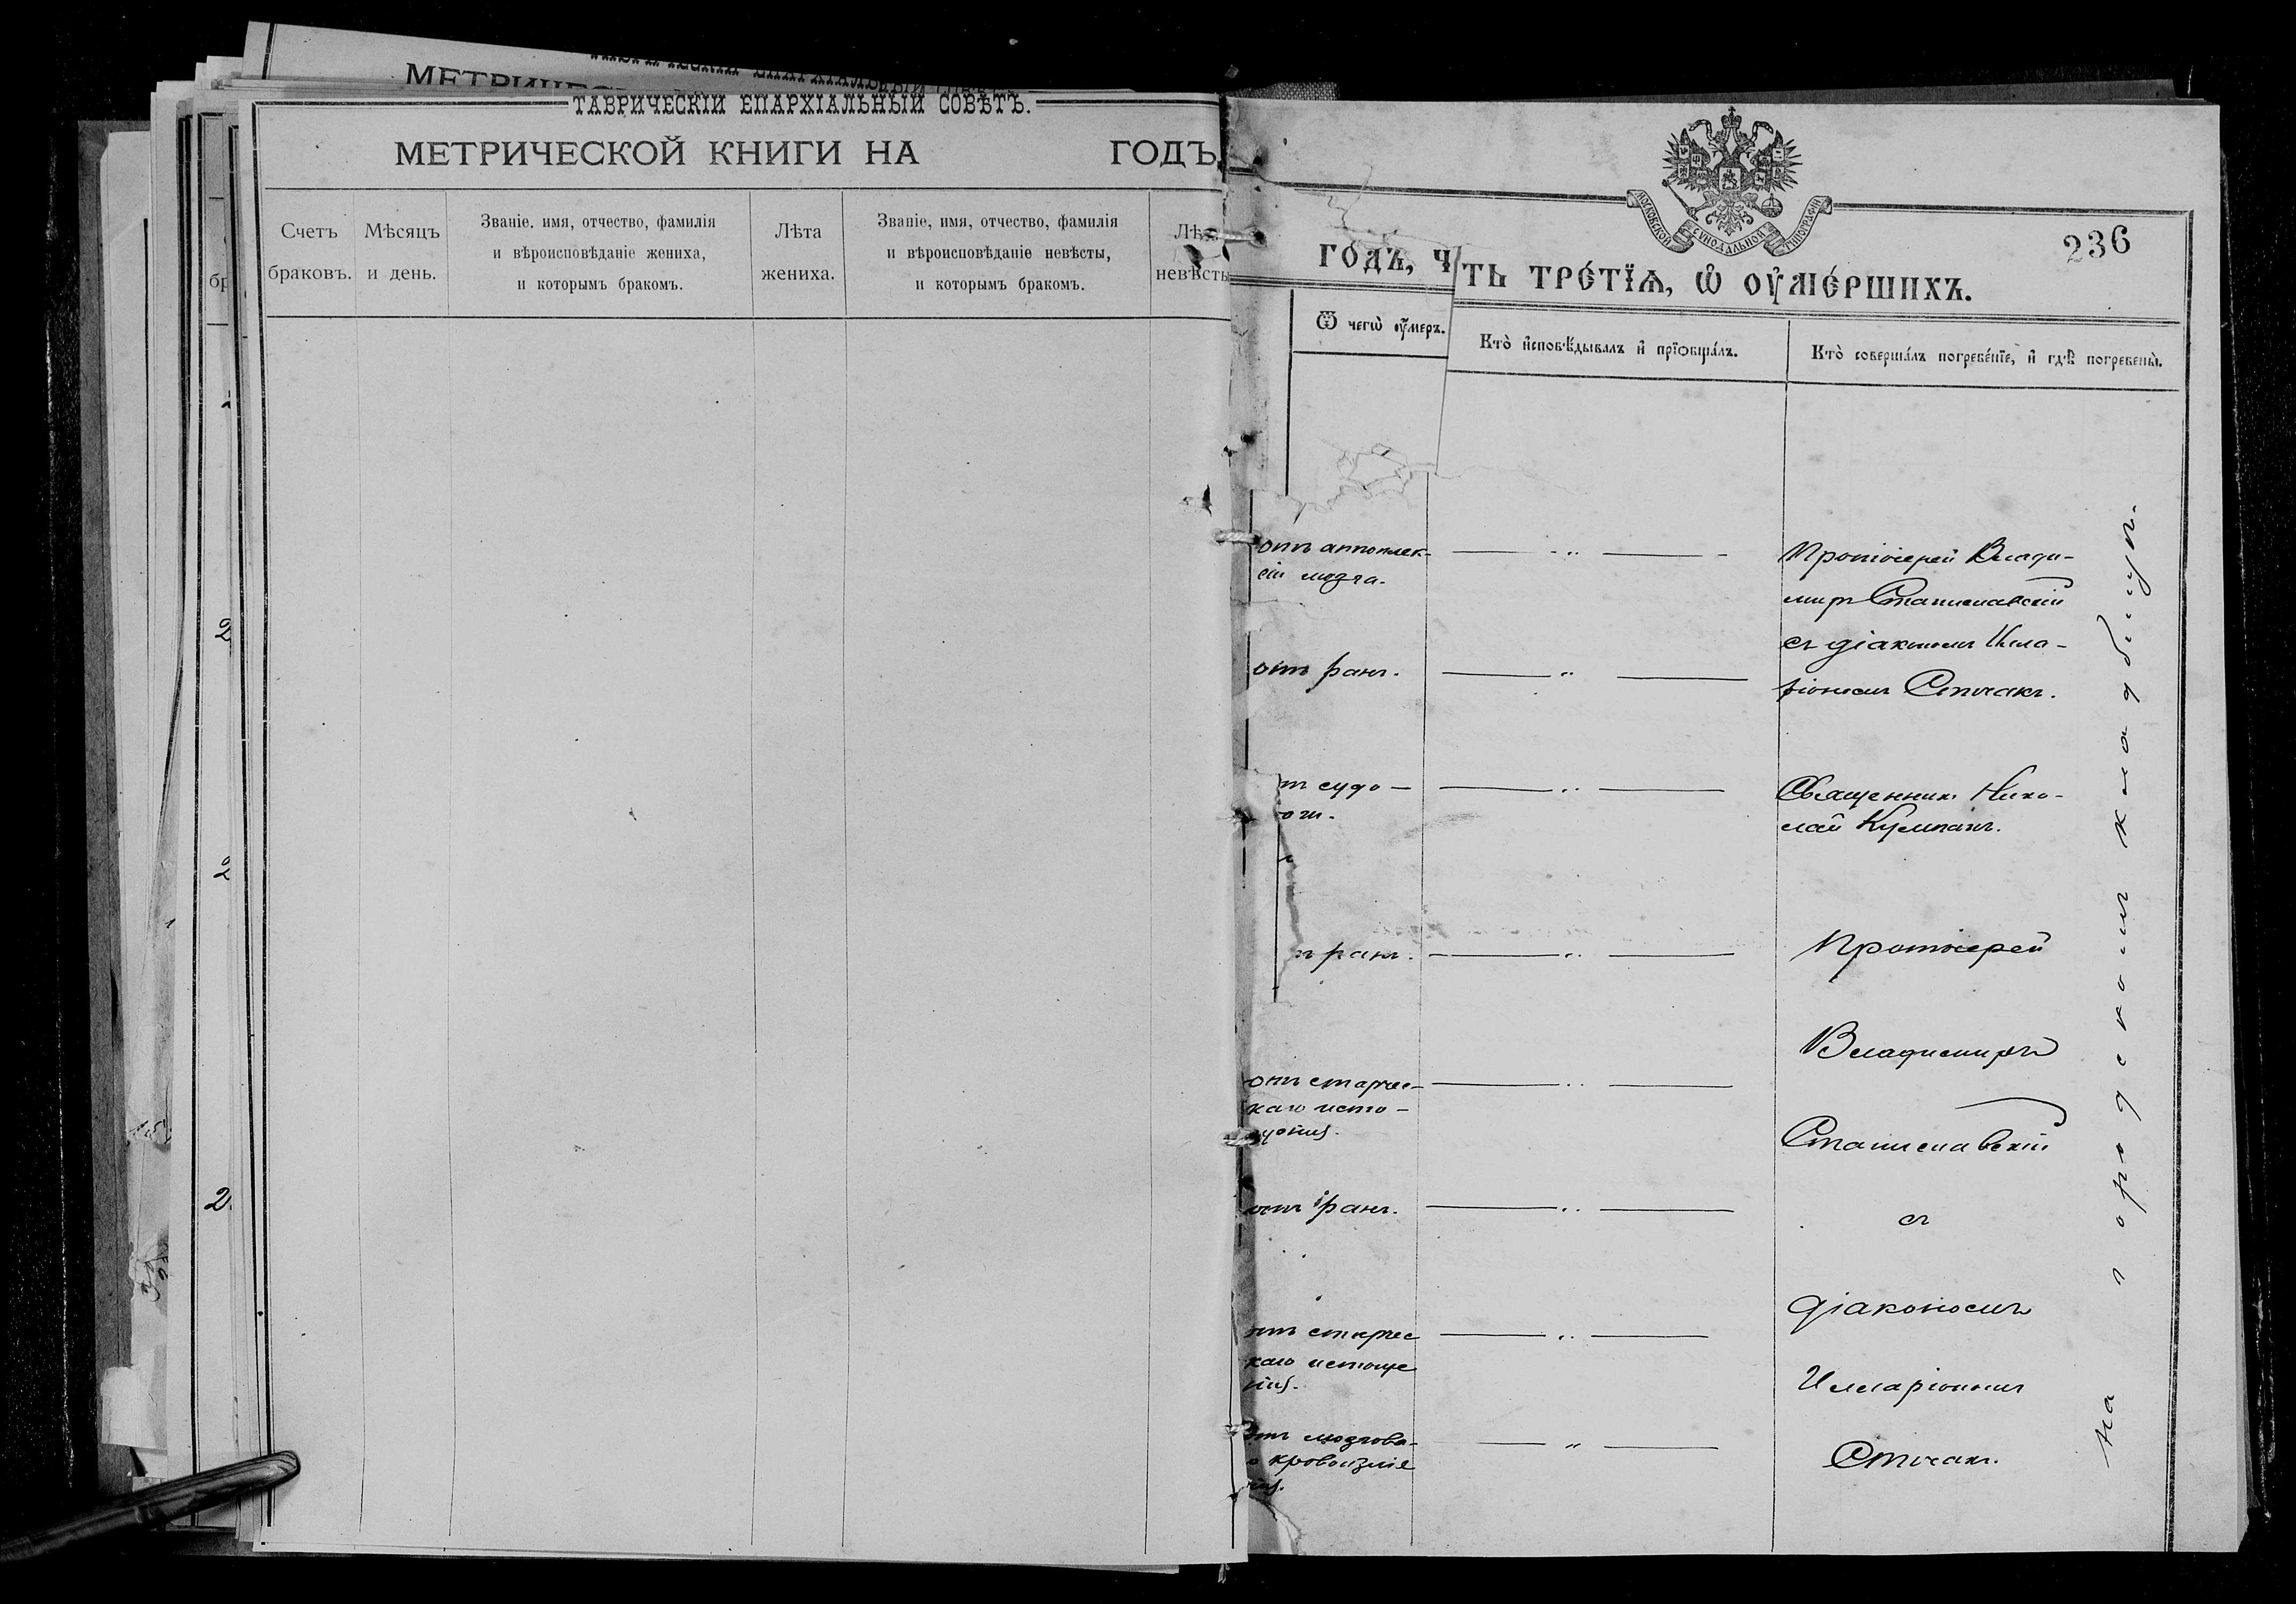 МЕТРИЧЕС
ТАВРИЧЕСКІЙ ЕПАРХІАЛЬНЫЙ СОВѢТЪ.
МЕТРИЧЕСКОЙ КНИГИ НА ГОДЪ
Счетъ
браковъ.
Мѣсяцъ
и день.
Званіе, имя, отчество, фамилія
и вѣроисповѣданіе жениха,
и которымъ бракомъ.
Лѣта
жениха.
Званіе, имя, отчество, фамилія
и вѣроисповѣданіе невѣсты,
и которымъ бракомъ.
Лѣ
невѣсты
2
2
2
МОСКОВСКОЙ СѴНОДАЛЬНОЙ ТИПОГРАФІИ
236
ГОДЪ, Ч ТЬ ТРЕ́ТЇѦ, Ѡ҆ ОУ҆МЕ́РШИХЪ.
Ѿ чегѡ̀ оу҆́меръ.
Кто̀ и҆сповѣ́дывалъ и҆ прїѡбща́лъ.
Кто̀ соверша́лъ погребе́нїе, и҆ гдѣ̀ погребены̀.
отъ апоплек-
сіи мозга.
Протоіерей Влади-
миръ Станиславскій
съ діакономъ Илла-
ріономъ Стчакъ.
отъ ранъ.
тъ судо-
оги.
Священникъ Нико-
лай Кумпанъ.
ъ ранъ.
Протоіерей
Владимиръ
отъ старчес-
каго исто-
щенія.
Станиславскій
отъ ранъ.
съ
діакономъ
отъ старчес
каго истоще
нія.
Илларіономъ
отъ мозгова-
о кровоизлія
нія.
Стчакъ.
На городскомъ кладбищѣ.